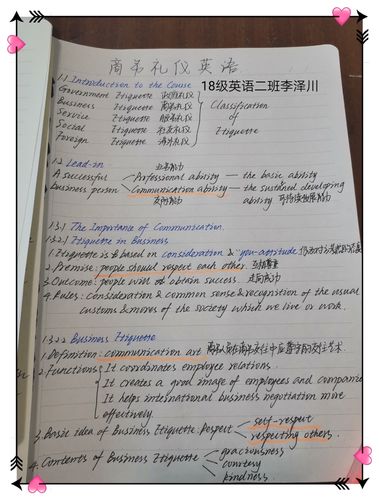 商务礼仪英语
18级英语二班李泽川
1.1 Introduction to the Course
Government Etiquette 政府礼仪
Business Etiquette 商务礼仪
Service Etiquette 服务礼仪
Social Etiquette 社交礼仪
Foreign Etiquette 涉外礼仪
Classification
of
Etiquette
1.2 Lead-in
业务能力
A successful Professional ability — the basic ability
business person Communication ability — the sustained developing
交际能力 ability 可持续发展能力
1.3.1 The Importance of Communication
1.3.2.1 Etiquette in Business
1. Etiquette is based in consideration & "you-attitude"
2. Premise: people should respect each other. 互相尊重
3. Outcome: people will obtain success. 走向成功
4. Rules: Consideration & common sense & recognition of the usual
customs & mores of the society which we live or work.
1.3.2.2 Business Etiquette
1. Definition: communication art 商务人员在商务交往中应遵守的交往艺术.
2. Functions It coordinates employee relations.
It creates a good image of employees and companies
It helps international business negotiation more
effectively.
3. Basic idea of Business Etiquette Respect self-respect
respecting others.
4. Contents of Business Etiquette graciousness
courtesy
kindness.